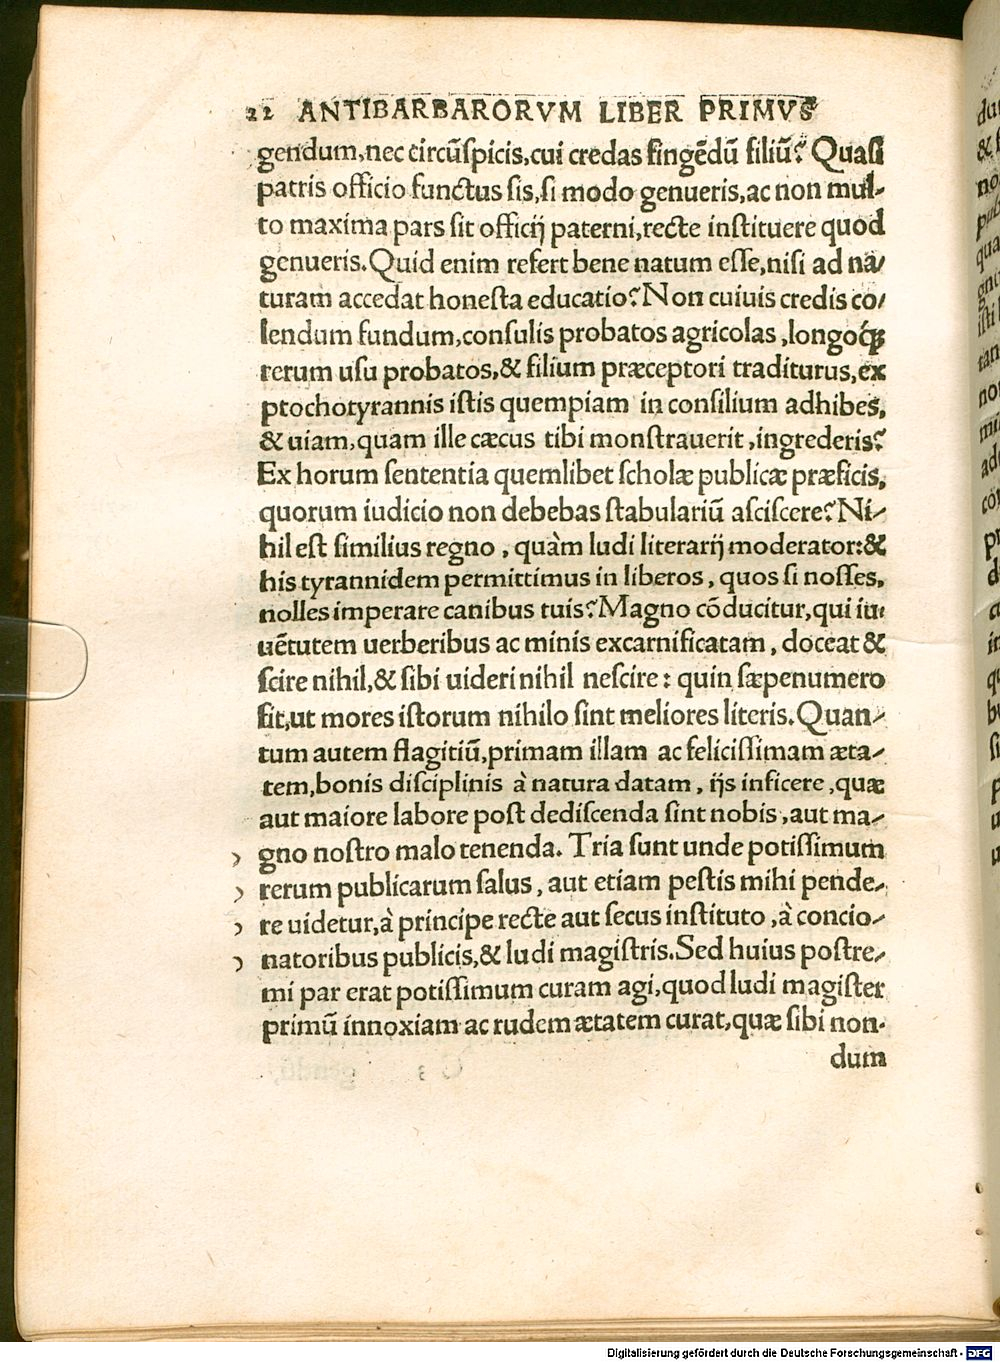 22 ANTIBARBARORVM LIBER PRIMVS
gendum,nec circũſpicis,cui credas fingẽdũ filiũ? Quaſi
patris officio functus ſis,ſi modo genueris,ac non mul-
to maxima pars ſit officij paterni,recte inſtituere quod
genueris.Quid enim refert bene natum eſſe,niſi ad na/
turam accedat honeſta educatio?Non cuiuis credis co/
lendum fundum,conſulis probatos agricolas,longoq́ꝫ
rerum uſu probatos,& filium præceptori traditurus,ex
ptochotyrannis iſtis quempiam in conſilium adhibes,
& uiam,quam ille cæcus tibi monſtrauerit,ingrederis?
Ex horum ſententia quemlibet ſcholæ publicæ præficis,
quorum iudicio non debebas ſtabulariũ aſciſcere?Ni-
hil eſt ſimilius regno, quàm ludi literarij moderator:&
his tyrannidem permittimus in liberos, quos ſi noſſes,
nolles imperare canibus tuis?Magno cõducitur,qui iu
uẽtutem uerberibus ac minis excarnificatam, doceat &
ſcire nihil,& ſibi uideri nihil neſcire: quin ſæpenumero
fit,ut mores iſtorum nihilo ſint meliores literis.Quan-
tum autem flagitiũ,primam illam ac feliciſſimam æta-
tem,bonis diſciplinis à natura datam, ijs inficere,quæ
aut maiore labore poſt dediſcenda ſint nobis,aut ma-
gno noſtro malo tenenda. Tria ſunt unde potiſſimum
rerum publicarum ſalus, aut etiam peſtis mihi pende-
re uidetur,à principe recte aut ſecus inſtituto,à concio-
natoribus publicis,& ludi magiſtris.Sed huius poſtre-
mi par erat potiſſimum curam agi,quod ludi magiſter
primũ innoxiam ac rudem ætatem curat,quæ ſibi non-
dum
Digitalisierung gefördert durch die Deutsche Forschungsgemeinschaft - DFG